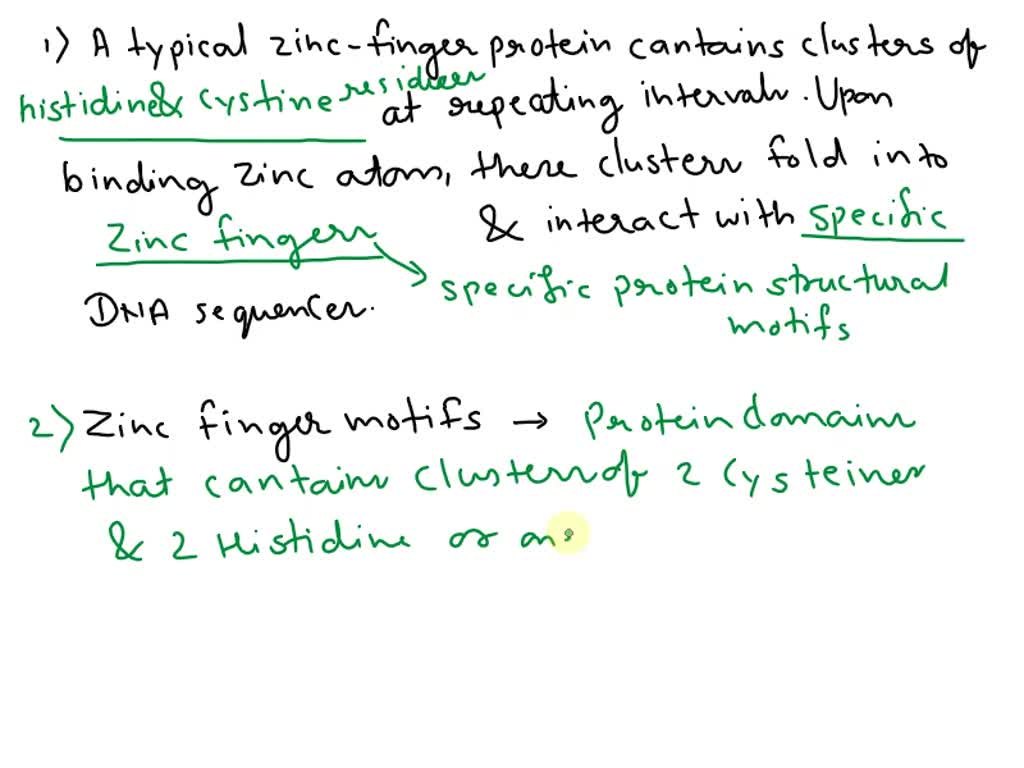 1) A typical zinc-finger protein cantains clusters of
histidine& cystine residues at repeating intervals. Upon
binding zinc atom, these clusters fold into
Zinc fingers & interact with specific
specific protein structural
DNA sequences. motifs
2) Zinc finger motifs → Protein domains
that cantains clusters of 2 Cysteines
& 2 Histidine or an